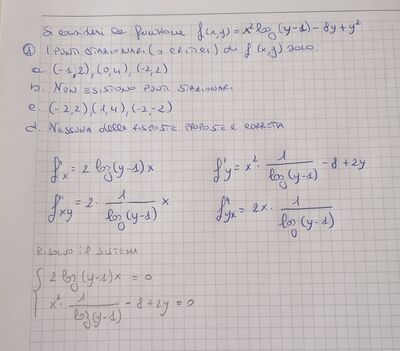 Si consideri la funzione f(x,y) = x² log (y-1) - 8y + y²
① I PUNTI STAZIONARI (o CRITICI) di f(x,y) sono:
a. (-1,2), (0,4), (-2,2)
b. NON ESISTONO PUNTI STAZIONARI
c. (-2,2), (1,4), (-2,-2)
d. NESSUNA delle RISPOSTE PROPOSTE È CORRETTA
f'x = 2 log(y-1) x f'y = x² · 1/log(y-1) - 8 + 2y
f''xy = 2 · 1/log(y-1) x f''yx = 2x · 1/log(y-1)
RISOLVO il SISTEMA
{ 2 log(y-1)x = 0
x² · 1/log(y-1) - 8 + 2y = 0